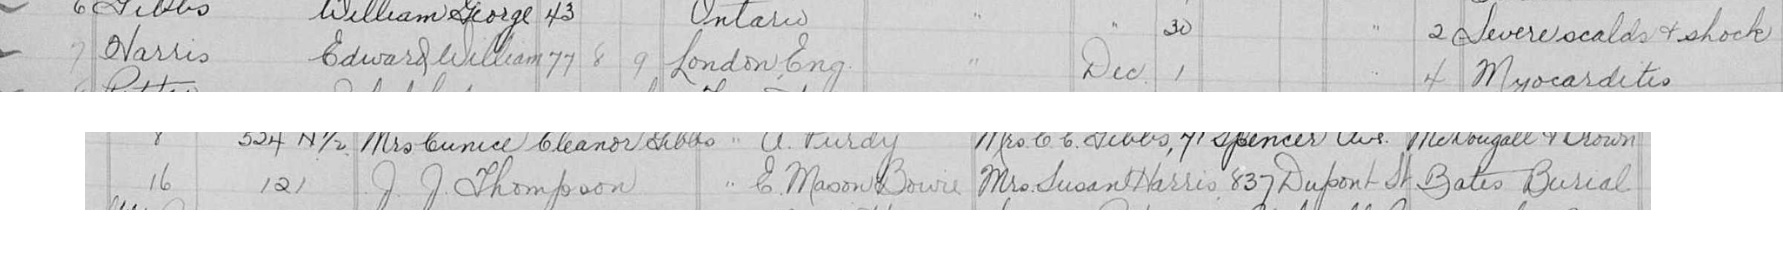 6 Gibbs William George 43 Ontario " " 30 " 2 Severe scalds & shock
7 Harris Edward William 77 8 9 London, Eng. " Dec. 1 " 4 Myocarditis
8 524 N½ Mrs Eunice Eleanor Gibbs " A. Purdy Mrs. E. E. Gibbs, 71 Spencer Ave. McDougall & Brown
16 121 J. J. Thompson " E. Mason Bowie Mrs. Susan Harris, 837 Dupont St Bates Burial